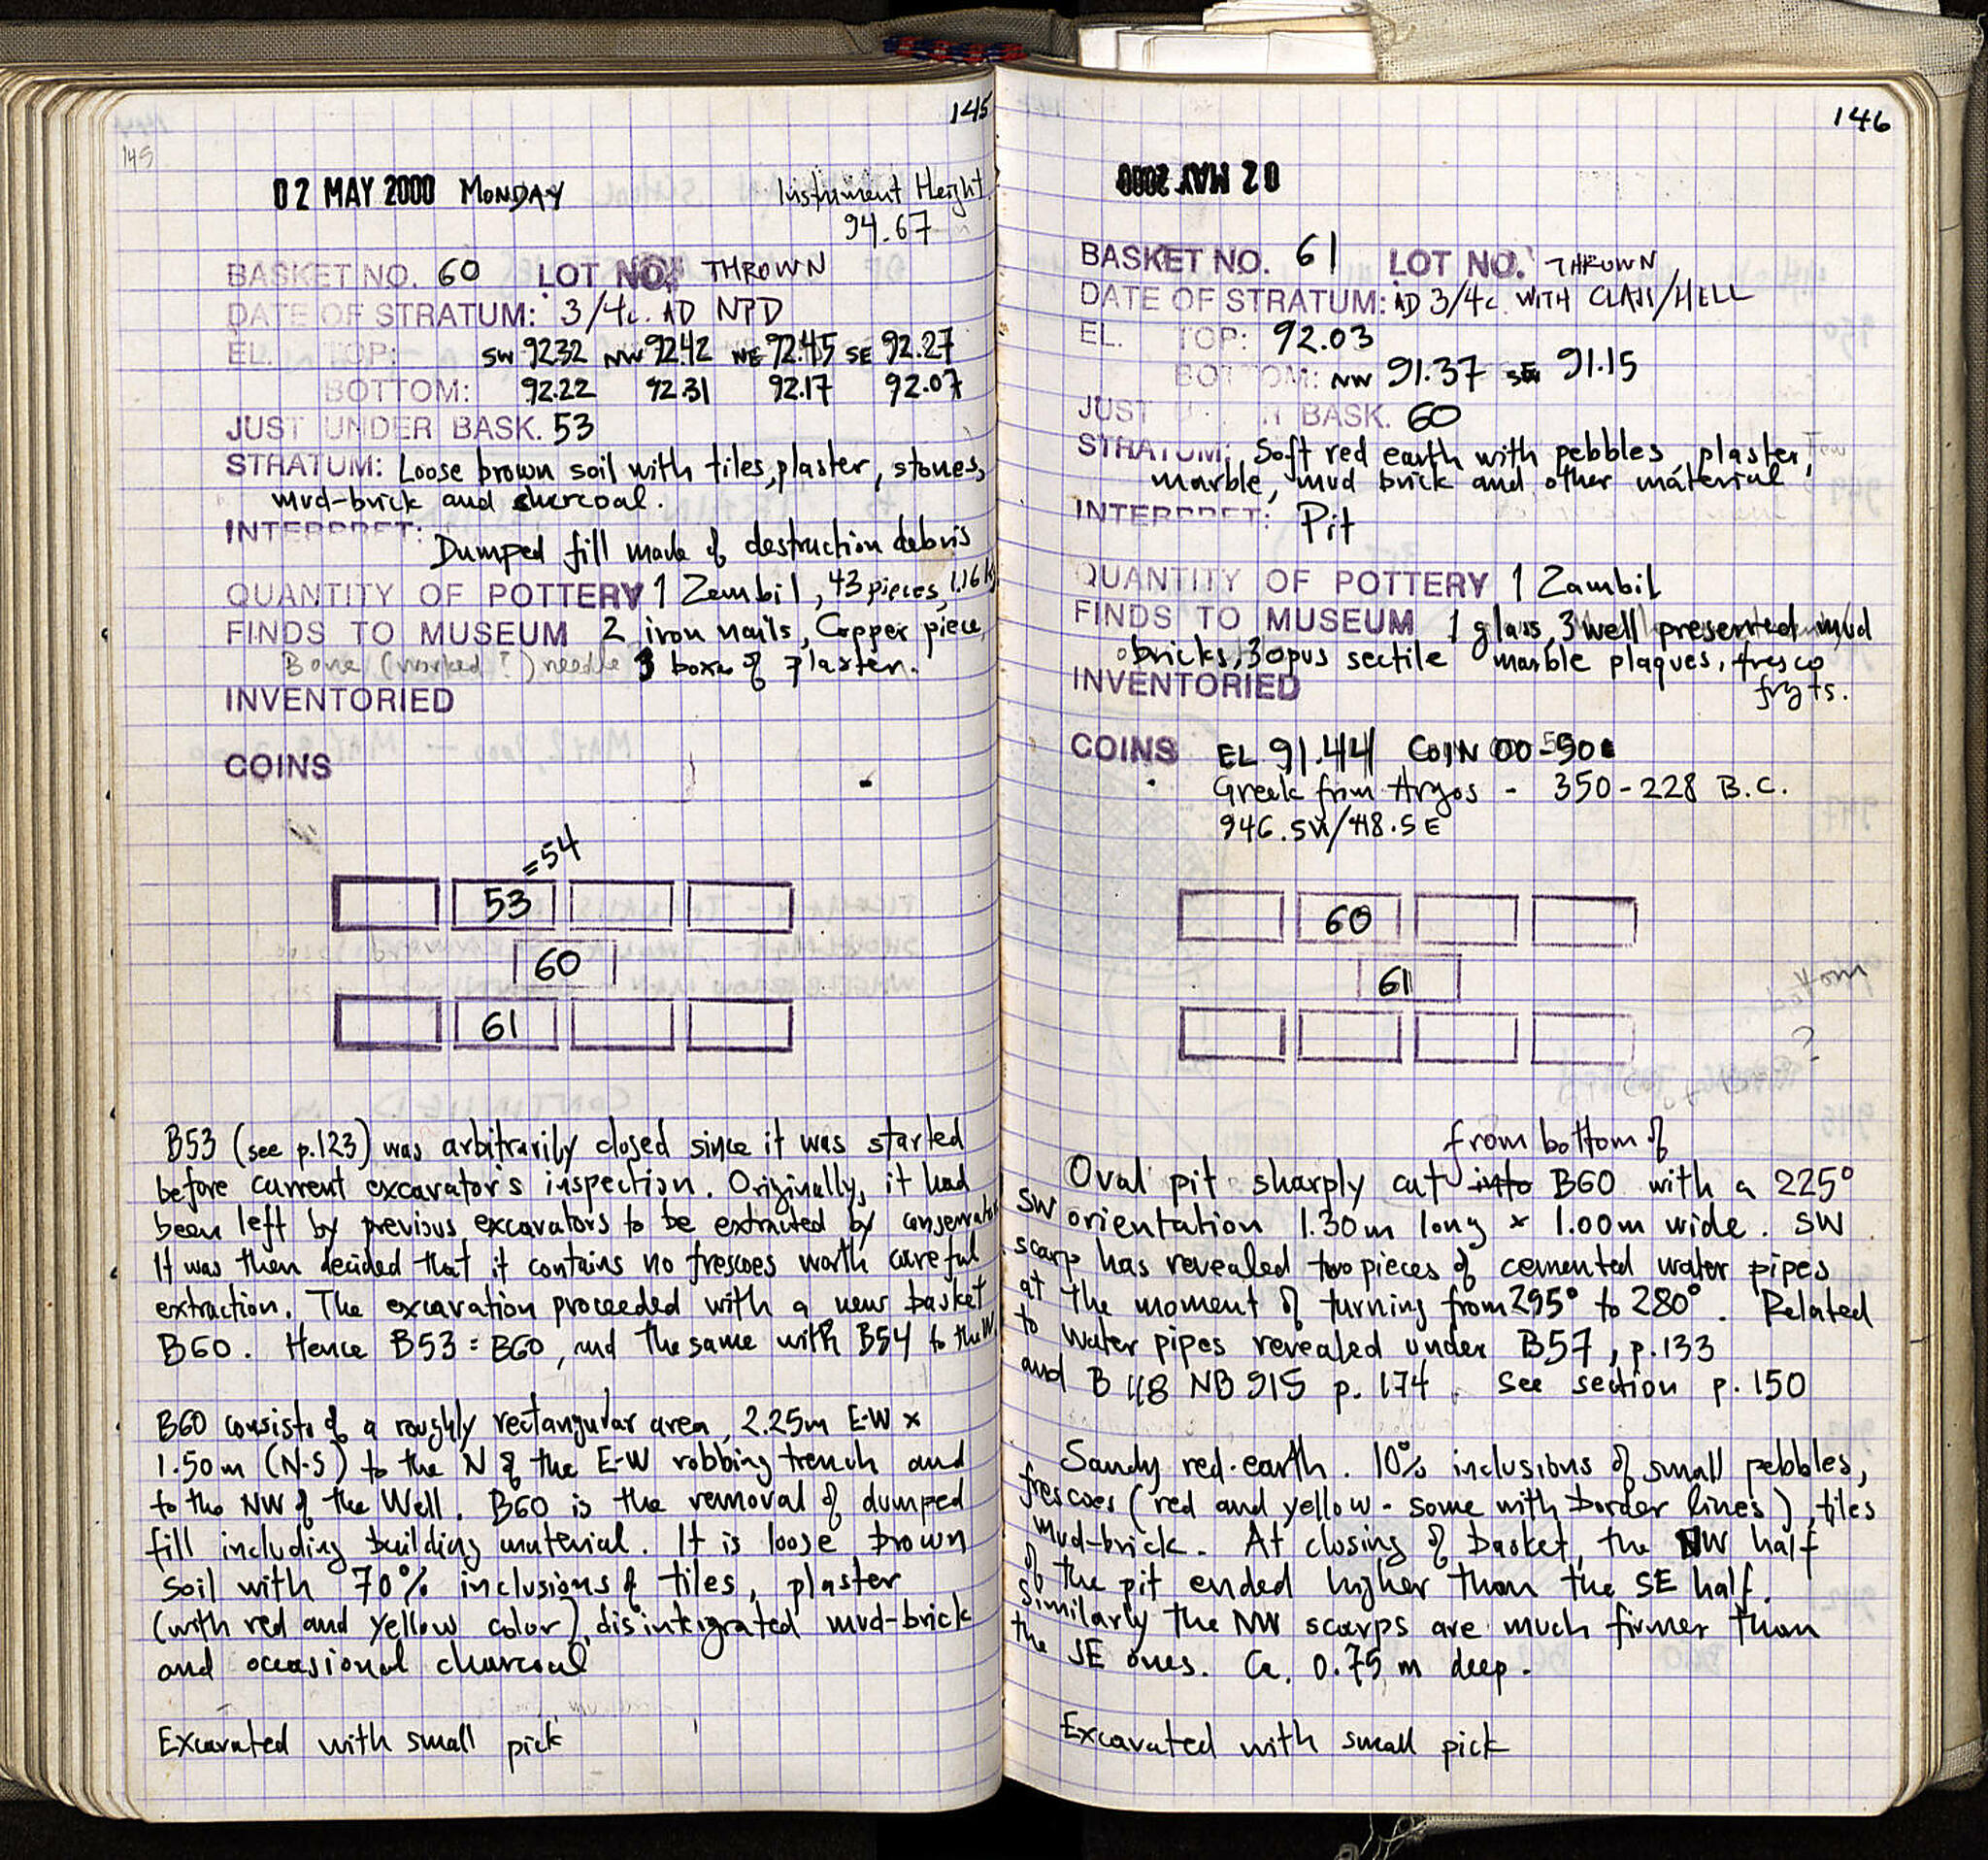 145
145
02 MAY 2000 MONDAY Instrument Height
94.67
BASKET NO. 60 LOT NO. THROWN
DATE OF STRATUM: 3/4c. AD NPD
EL. TOP: SW 92.32 NW 92.42 NE 92.45 SE 92.27
BOTTOM: 92.22 92.31 92.17 92.07
JUST UNDER BASK. 53
STRATUM: Loose brown soil with tiles, plaster, stones,
mud-brick and charcoal.
INTERPRET: Dumped fill made of destruction debris
QUANTITY OF POTTERY 1 Zembil, 43 pieces, 1.16 k
FINDS TO MUSEUM 2 iron nails, Copper piece,
Bone (worked?) needle 3 boxes of plaster.
INVENTORIED
COINS -
=54
53
60
61
B53 (see p.123) was arbitrarily closed since it was started
before current excavator's inspection. Originally, it had
been left by previous excavators to be extracted by conservators
It was then decided that it contains no frescoes worth careful
extraction. The excavation proceeded with a new basket
B60. Hence B53 = B60, and the same with B54 to the W
B60 consists of a roughly rectangular area, 2.25m E-W x
1.50m (N-S) to the N of the E-W robbing trench and
to the NW of the Well. B60 is the removal of dumped
fill including building material. It is loose brown
soil with 70% inclusions of tiles, plaster
(with red and yellow color), disintegrated mud-brick
and occasional charcoal
Excavated with small pick
146
02 MAY 2000
BASKET NO. 61 LOT NO. THROWN
DATE OF STRATUM: AD 3/4c. WITH CLASS/HELL
EL. TOP: 92.03
BOTTOM: NW 91.37 SE 91.15
JUST BASK. 60
STRATUM: Soft red earth with pebbles, plaster,
marble, mud brick and other material
INTERPRET: Pit
QUANTITY OF POTTERY 1 Zambil
FINDS TO MUSEUM 1 glass, 3 well preserved mud
bricks, 3 opus sectile marble plaques, fresco
frgts.
INVENTORIED
COINS EL 91.44 COIN 00-50
Greek from Argos - 350-228 B.C.
60
61
from bottom of
Oval pit sharply cut into B60 with a 225°
SW orientation 1.30m long x 1.00m wide. SW
scarp has revealed two pieces of cemented water pipes
at the moment of turning from 295° to 280°. Related
to water pipes revealed under B57, p.133
and B 48 NB 915 p. 174. See section p. 150
Sandy red earth. 10% inclusions of small pebbles,
frescoes (red and yellow - some with border lines), tiles
mud-brick. At closing of basket, the NW half
of the pit ended higher than the SE half.
Similarly the NW scarps are much firmer than
the SE ones. Ca. 0.75 m deep.
Excavated with small pick